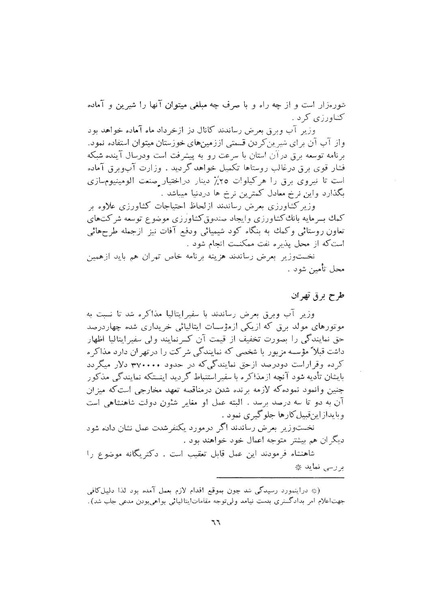 شوره‌زار است و از چه راه و با صرف چه مبلغی میتوان آنها را شیرین و آماده
کشاورزی کرد .
وزیر آب وبرق بعرض رساندند کانال دز ازخرداد ماه آماده خواهد بود
واز آب آن برای شیرین‌کردن قسمتی اززمین‌های خوزستان میتوان استفاده نمود.
برنامه توسعه برق درآن استان با سرعت رو به پیشرفت است ودرسال آینده شبکه
فشار قوی برق درغالب روستاها تکمیل خواهد گردید . وزارت آب‌وبرق آماده
است تا نیروی برق را هرکیلوات ۲۵٪ دینار دراختیار صنعت الومینیوم‌سازی
بگذارد واین نرخ معادل کمترین نرخ ها دردنیا میباشد .
وزیرکشاورزی بعرض رساندند ازلحاظ احتیاجات کشاورزی علاوه بر
کمک بسرمایه بانک‌کشاورزی وایجاد صندوق‌کشاورزی موضوع توسعه شرکت‌های
تعاون روستائی وکمک به بنگاه کود شیمیائی ودفع آفات نیز ازجمله طرح‌هائی
است‌که از محل پذیره نفت ممکنست انجام شود .
نخست‌وزیر بعرض رساندند هزینه برنامه خاص تهران هم باید ازهمین
محل تأمین شود .
طرح برق تهران
وزیر آب وبرق بعرض رساندند با سفیرایتالیا مذاکره شد تا نسبت به
موتورهای مولد برق که ازیکی ازمؤسسات ایتالیائی خریداری شده چهاردرصد
حق نمایندگی را بصورت تخفیف از قیمت آن کسرنمایند ولی سفیرایتالیا اظهار
داشت قبلاً مؤسسه مزبور با شخصی که نمایندگی شرکت را درتهران دارد مذاکره
کرده وقراراست دودرصد ازحق نمایندگی‌که در حدود ۳۷۰۰۰۰ دلار میگردد
بایشان تأدیه شود آنچه ازمذاکره با سفیراستنباط گردید اینستکه نمایندگی مذکور
چنین وانمود نموده‌که لازمه برنده شدن درمناقصه تعهد مخارجی است‌که میزان
آن به دو تا سه درصد برسد . البته عمل او مغایر شئون دولت شاهنشاهی است
وبایدازاین‌قبیل‌کارها جلوگیری نمود .
نخست‌وزیر بعرض رساندند اگر درمورد یکنفرشدت عمل نشان داده شود
دیگران هم بیشتر متوجه اعمال خود خواهند بود .
شاهنشاه فرمودند این عمل قابل تعقیب است . دکتریگانه موضوع را
بررسی نماید *
(* دراینمورد رسیدگی شد چون بموقع اقدام لازم بعمل آمده بود لذا دلیل‌کافی
جهت‌اعلام امر بدادگستری بدست نیامد ولی‌توجه مقامات‌ایتالیائی بواهی‌بودن مدعی جلب شد).
۶۶